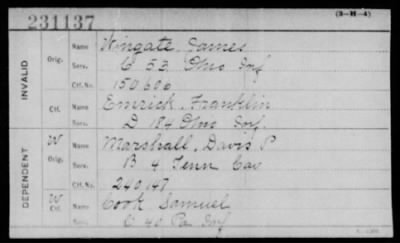 231137
(3-H-4)
INVALID
Orig.
Name Wingate, James
Serv. C 53 Ohio Inf
Ctf. No. 150,606
Ctf.
Name Emrick, Franklin
Serv. D 184 Ohio Inf.
DEPENDENT
W
Orig.
Name Marshall, Davis P
Serv. B 4 Tenn Cav
Ctf. No. 240,147
W
Ctf.
Name Cook Samuel
Serv. C 40 Pa Inf